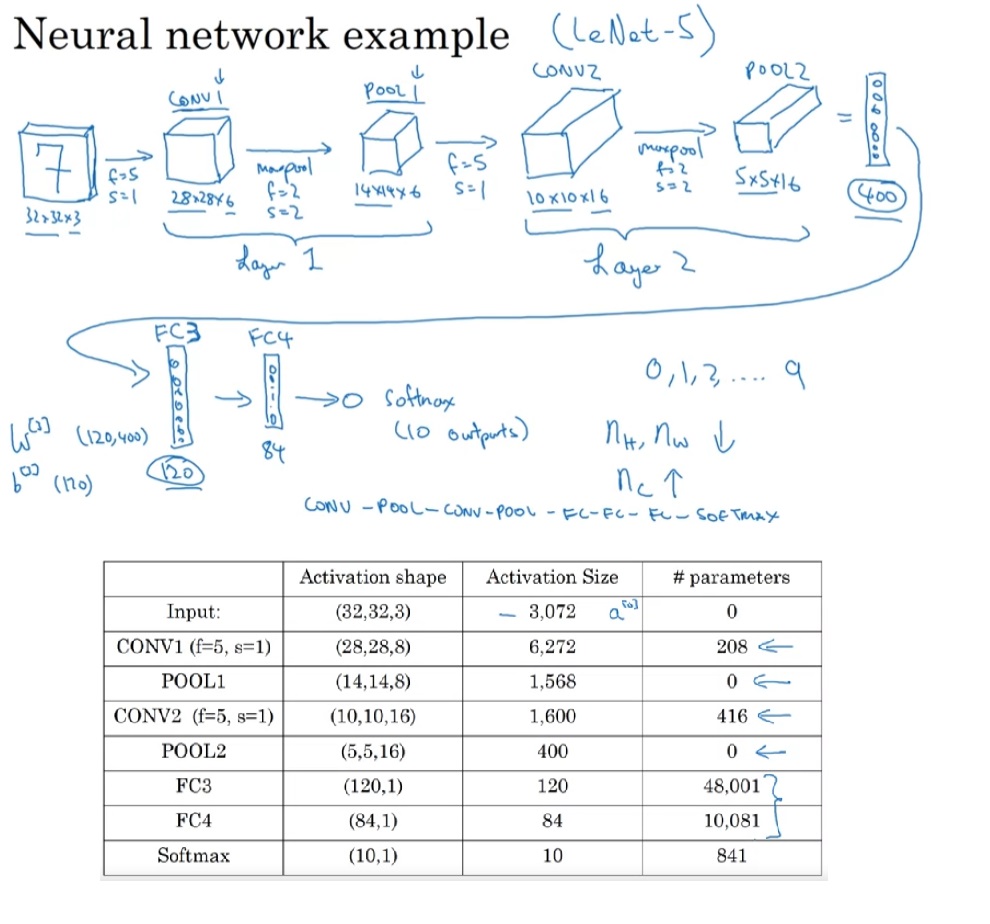 Neural network example (LeNet-5)
CONV1 POOL1 CONV2 POOL2
7
f=5
s=1
maxpool
f=2
s=2
f=5
s=1
maxpool
f=2
s=2
=
32×32×3 28×28×6 14×14×6 10×10×16 5×5×16 400
Layer 1 Layer 2
FC3 FC4
0,1,2,.... 9
Softmax
(10 outputs)
(120,400)
(120)
120 84
n_H, n_W ↓
n_C ↑
CONV-POOL-CONV-POOL-FC-FC-FC-SOFTMAX
Activation shape Activation Size # parameters
Input: (32,32,3) – 3,072 a^[0] 0
CONV1 (f=5, s=1) (28,28,8) 6,272 208 ←
POOL1 (14,14,8) 1,568 0 ←
CONV2 (f=5, s=1) (10,10,16) 1,600 416 ←
POOL2 (5,5,16) 400 0 ←
FC3 (120,1) 120 48,001 }
FC4 (84,1) 84 10,081
Softmax (10,1) 10 841